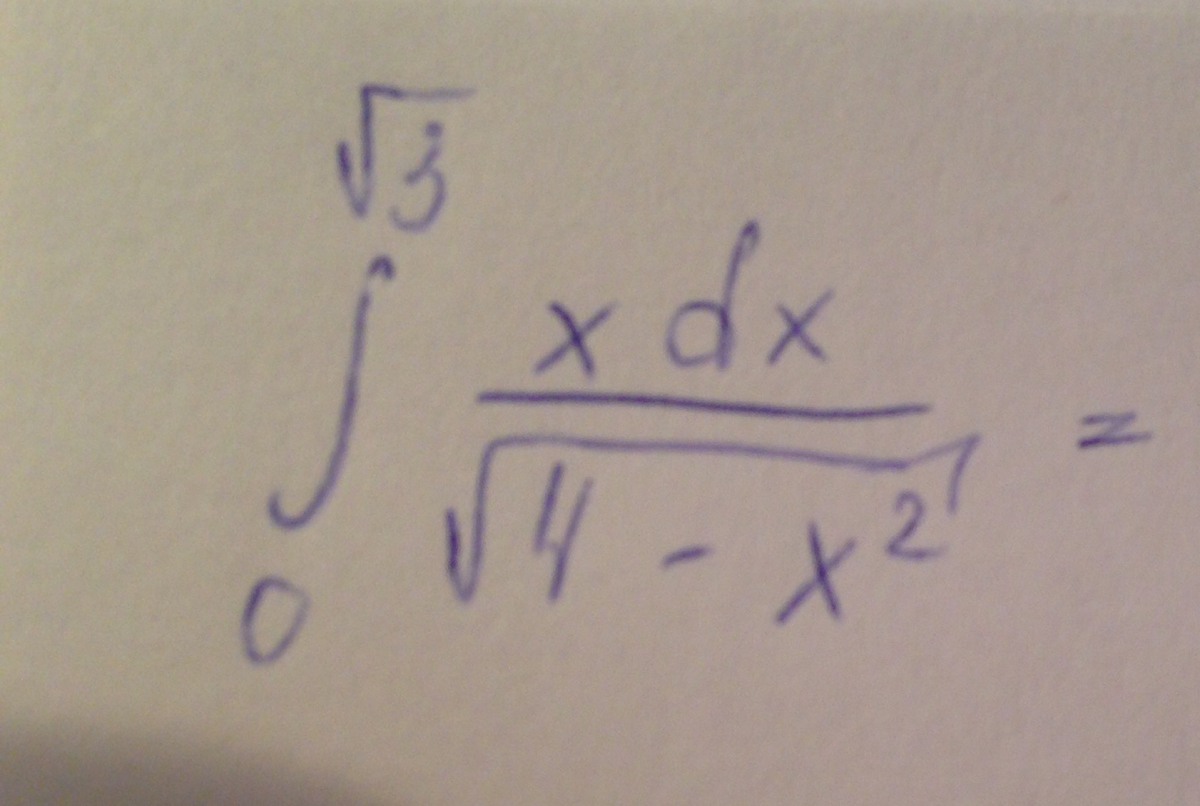 ∫₀^√3 x dx / √(4 - x²) =